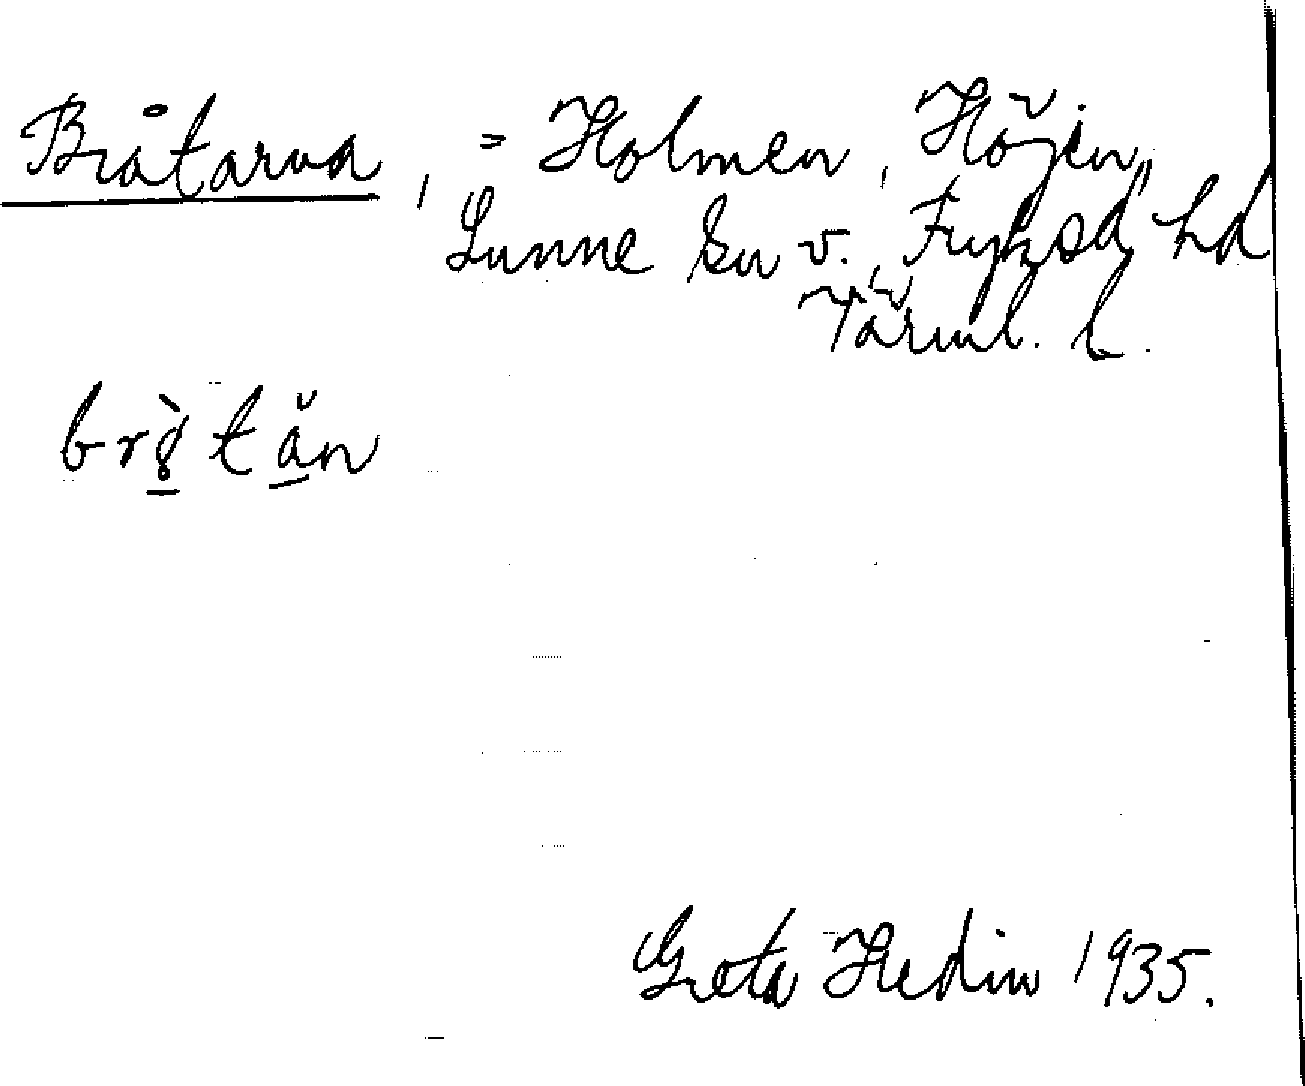 Bråtarna, = Holmen, Höjen,
Sunne sn v., Fryksd. hd
Värml. l.
brø̀tăn
Greta Hedin 1935.